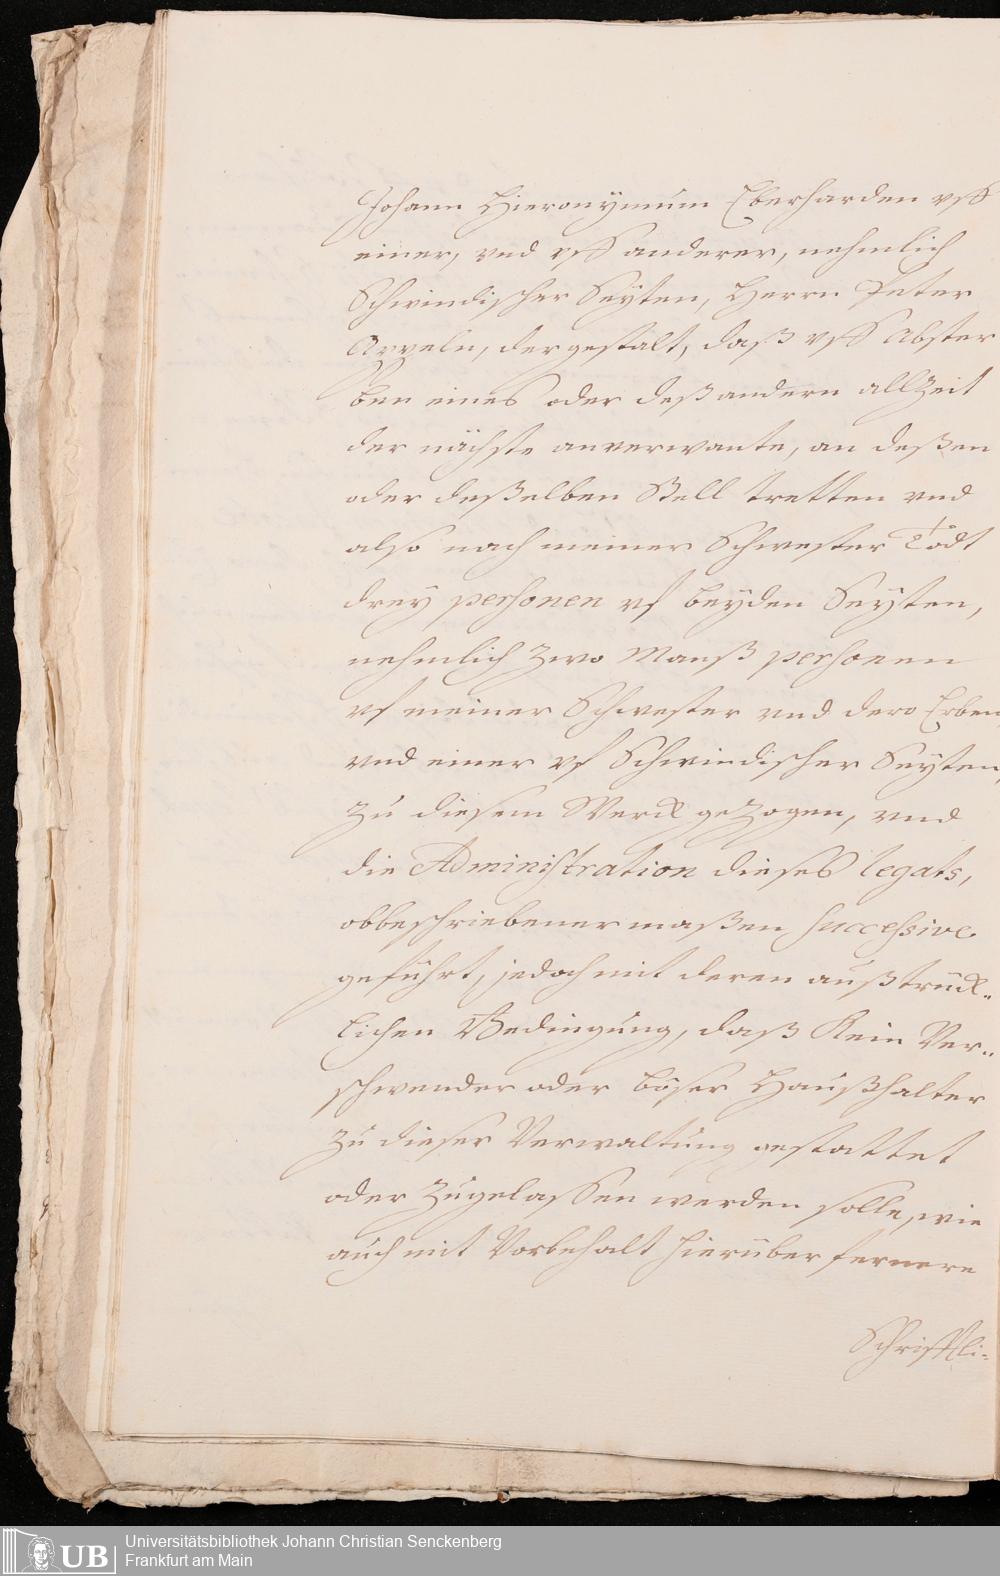 Johann Hieronymum Eberharden vff
einer, vnd vff anderer, nehmlich
Schwindischer Seyten, Herrn Peter
Appeln, der gestalt, daß vff Abster
ben eines oder deß andern allzeit
der nächste anverwante, an deßen
oder deßelben Stell tretten vnd
also nach meiner Schwester Todt
drey personen vf beyden Seyten,
nehmlich zwo Manß personen
vf meiner Schwester vnd dero Erben
vnd einer vf Schwindischer Seyten,
zu diesem Werck gezogen, vnd
die Administration dieses legats,
obbeschriebener maßen successive
geführt, jedoch mit deren außtrück-
lichen Bedingung, daß Kein Ver-
schwender oder böser Haußhalter
zu dieser Verwaltung gestattet
oder zugelassen werden solle, wie
auch mit Vorbehalt hierüber fernere
Schrifftli-
Universitätsbibliothek Johann Christian Senckenberg
UB Frankfurt am Main